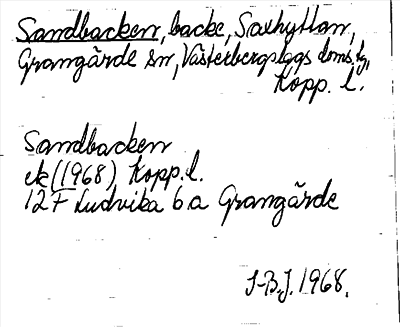 Sandbacken, backe, Saxhyttan,
Grangärde sn, Västerbergslags doms.tg,
Kopp. l.
Sandbacken
ek (1968) Kopp. l.
12 F Ludvika 6 a Grangärde
I-B.J. 1968.